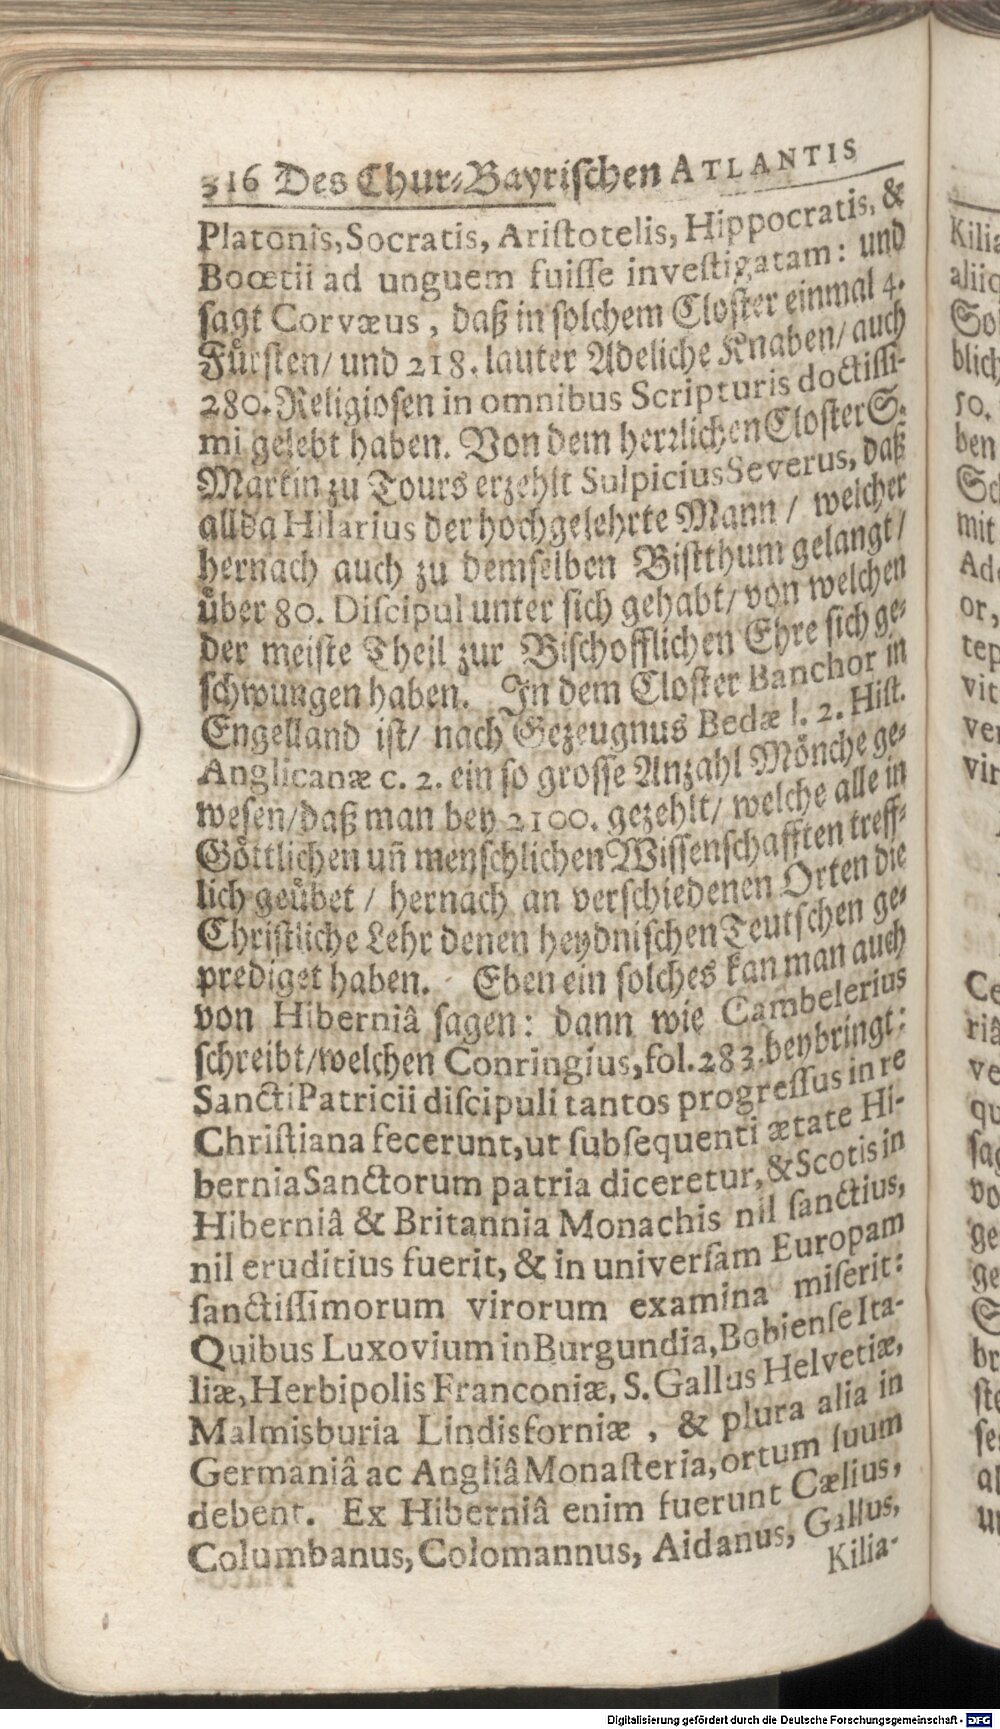 316 Des Chur-Bayrischen ATLANTIS
Platonis, Socratis, Aristotelis, Hippocratis, &
Boœtii ad unguem fuisse investigatam: und
sagt Corvæus, daß in solchem Closter einmal 4.
Fürsten/ und 218. lauter Adeliche Knaben/ auch
280. Religiosen in omnibus Scripturis doctissi-
mi gelebt haben. Von dem herrlichen Closter S.
Martin zu Tours erzehlt Sulpicius Severus, daß
allda Hilarius der hochgelehrte Mann / welcher
hernach auch zu demselben Bistthum gelangt/
über 80. Discipul unter sich gehabt/ von welchen
der meiste Theil zur Bischofflichen Ehre sich ge-
schwungen haben. In dem Closter Banchor in
Engelland ist/ nach Gezeugnus Bedæ l. 2. Hist.
Anglicanæ c. 2. ein so grosse Anzahl Mönche ge-
wesen/daß man bey 2100. gezehlt/ welche alle in
Göttlichen uñ menschlichen Wissenschafften treff-
lich geübet / hernach an verschiedenen Orten die
Christliche Lehr denen heydnischen Teutschen ge-
prediget haben. Eben ein solches kan man auch
von Hiberniâ sagen: dann wie Cambelerius
schreibt/welchen Conringius, fol. 283. beybringt:
Sancti Patricii discipuli tantos progressus in re
Christiana fecerunt, ut subsequenti ætate Hi-
bernia Sanctorum patria diceretur, & Scotis in
Hiberniâ & Britannia Monachis nil sanctius,
nil eruditius fuerit, & in universam Europam
sanctissimorum virorum examina miserit:
Quibus Luxovium in Burgundia, Bobiense Ita-
liæ, Herbipolis Franconiæ, S. Gallus Helvetiæ,
Malmisburia Lindisforniæ, & plura alia in
Germaniâ ac Angliâ Monasteria, ortum suum
debent. Ex Hiberniâ enim fuerunt Cælius,
Columbanus, Colomannus, Aidanus, Gallus,
Kilia-
Digitalisierung gefördert durch die Deutsche Forschungsgemeinschaft - DFG